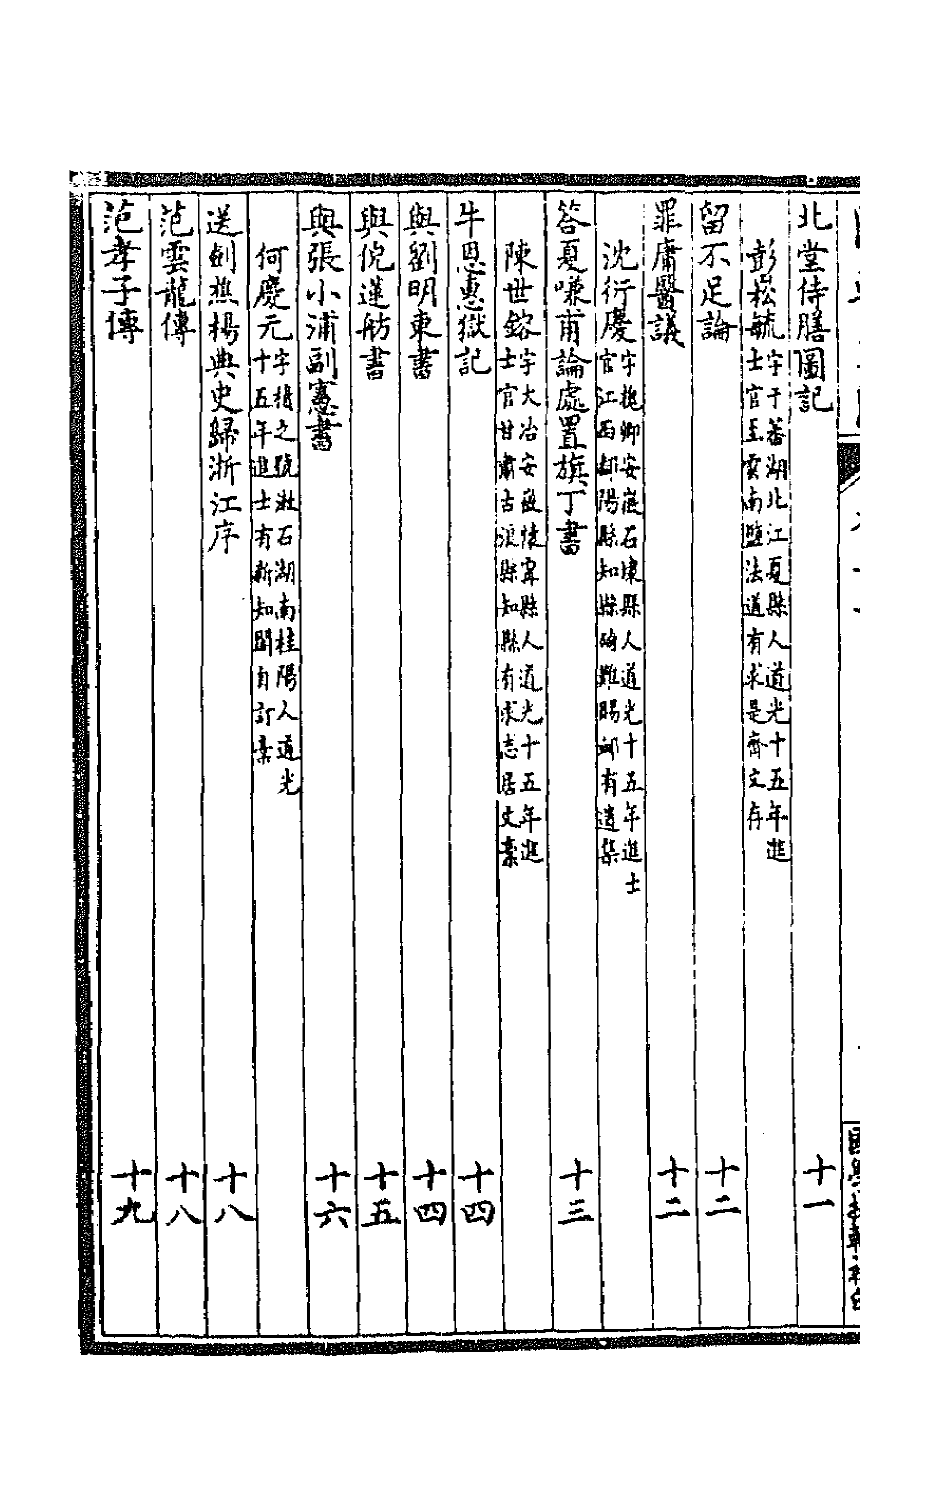 北堂侍膳圖記 十一
彭崧毓 字于蕃湖北江夏縣人道光十五年進
士官至雲南鹽法道有求是齋文存
留不足論 十二
罪庸醫議 十二
沈衍慶 字槐卿安徽石埭縣人道光十五年進士
官江西鄱陽縣知縣殉難賜卹有遺集
答夏嗛甫論處置旗丁書 十三
陳世鎔 字大冶安徽懷寧縣人道光十五年進
士官甘肅古浪縣知縣有求志居文稾
牛恩惠獄記 十四
與劉明東書 十四
與倪蓮舫書 十五
與張小浦副憲書 十六
何慶元 字積之號潄石湖南桂陽人道光
十五年進士有新知閣自訂稾
送劍蕉楊典史歸浙江序 十八
范雲龍傳 十八
范孝子傳 十九